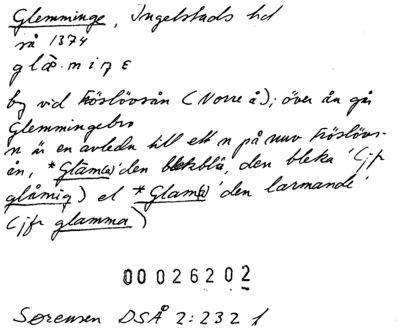 Glemminge, Ingelstads hd
så 1374
glæ·miŋɛ
by vid Fröslövsån (Norre å); över ån går
Glemmingebro
n är en avledn till ett n på nuv Fröslövs-
ån, *Glām(a) 'den blekblå, den bleka' (jfr
glåmig) el *Glam(a) 'den larmande'
(jfr glamma)
00026202
Sørensen DSÅ 2:232 f